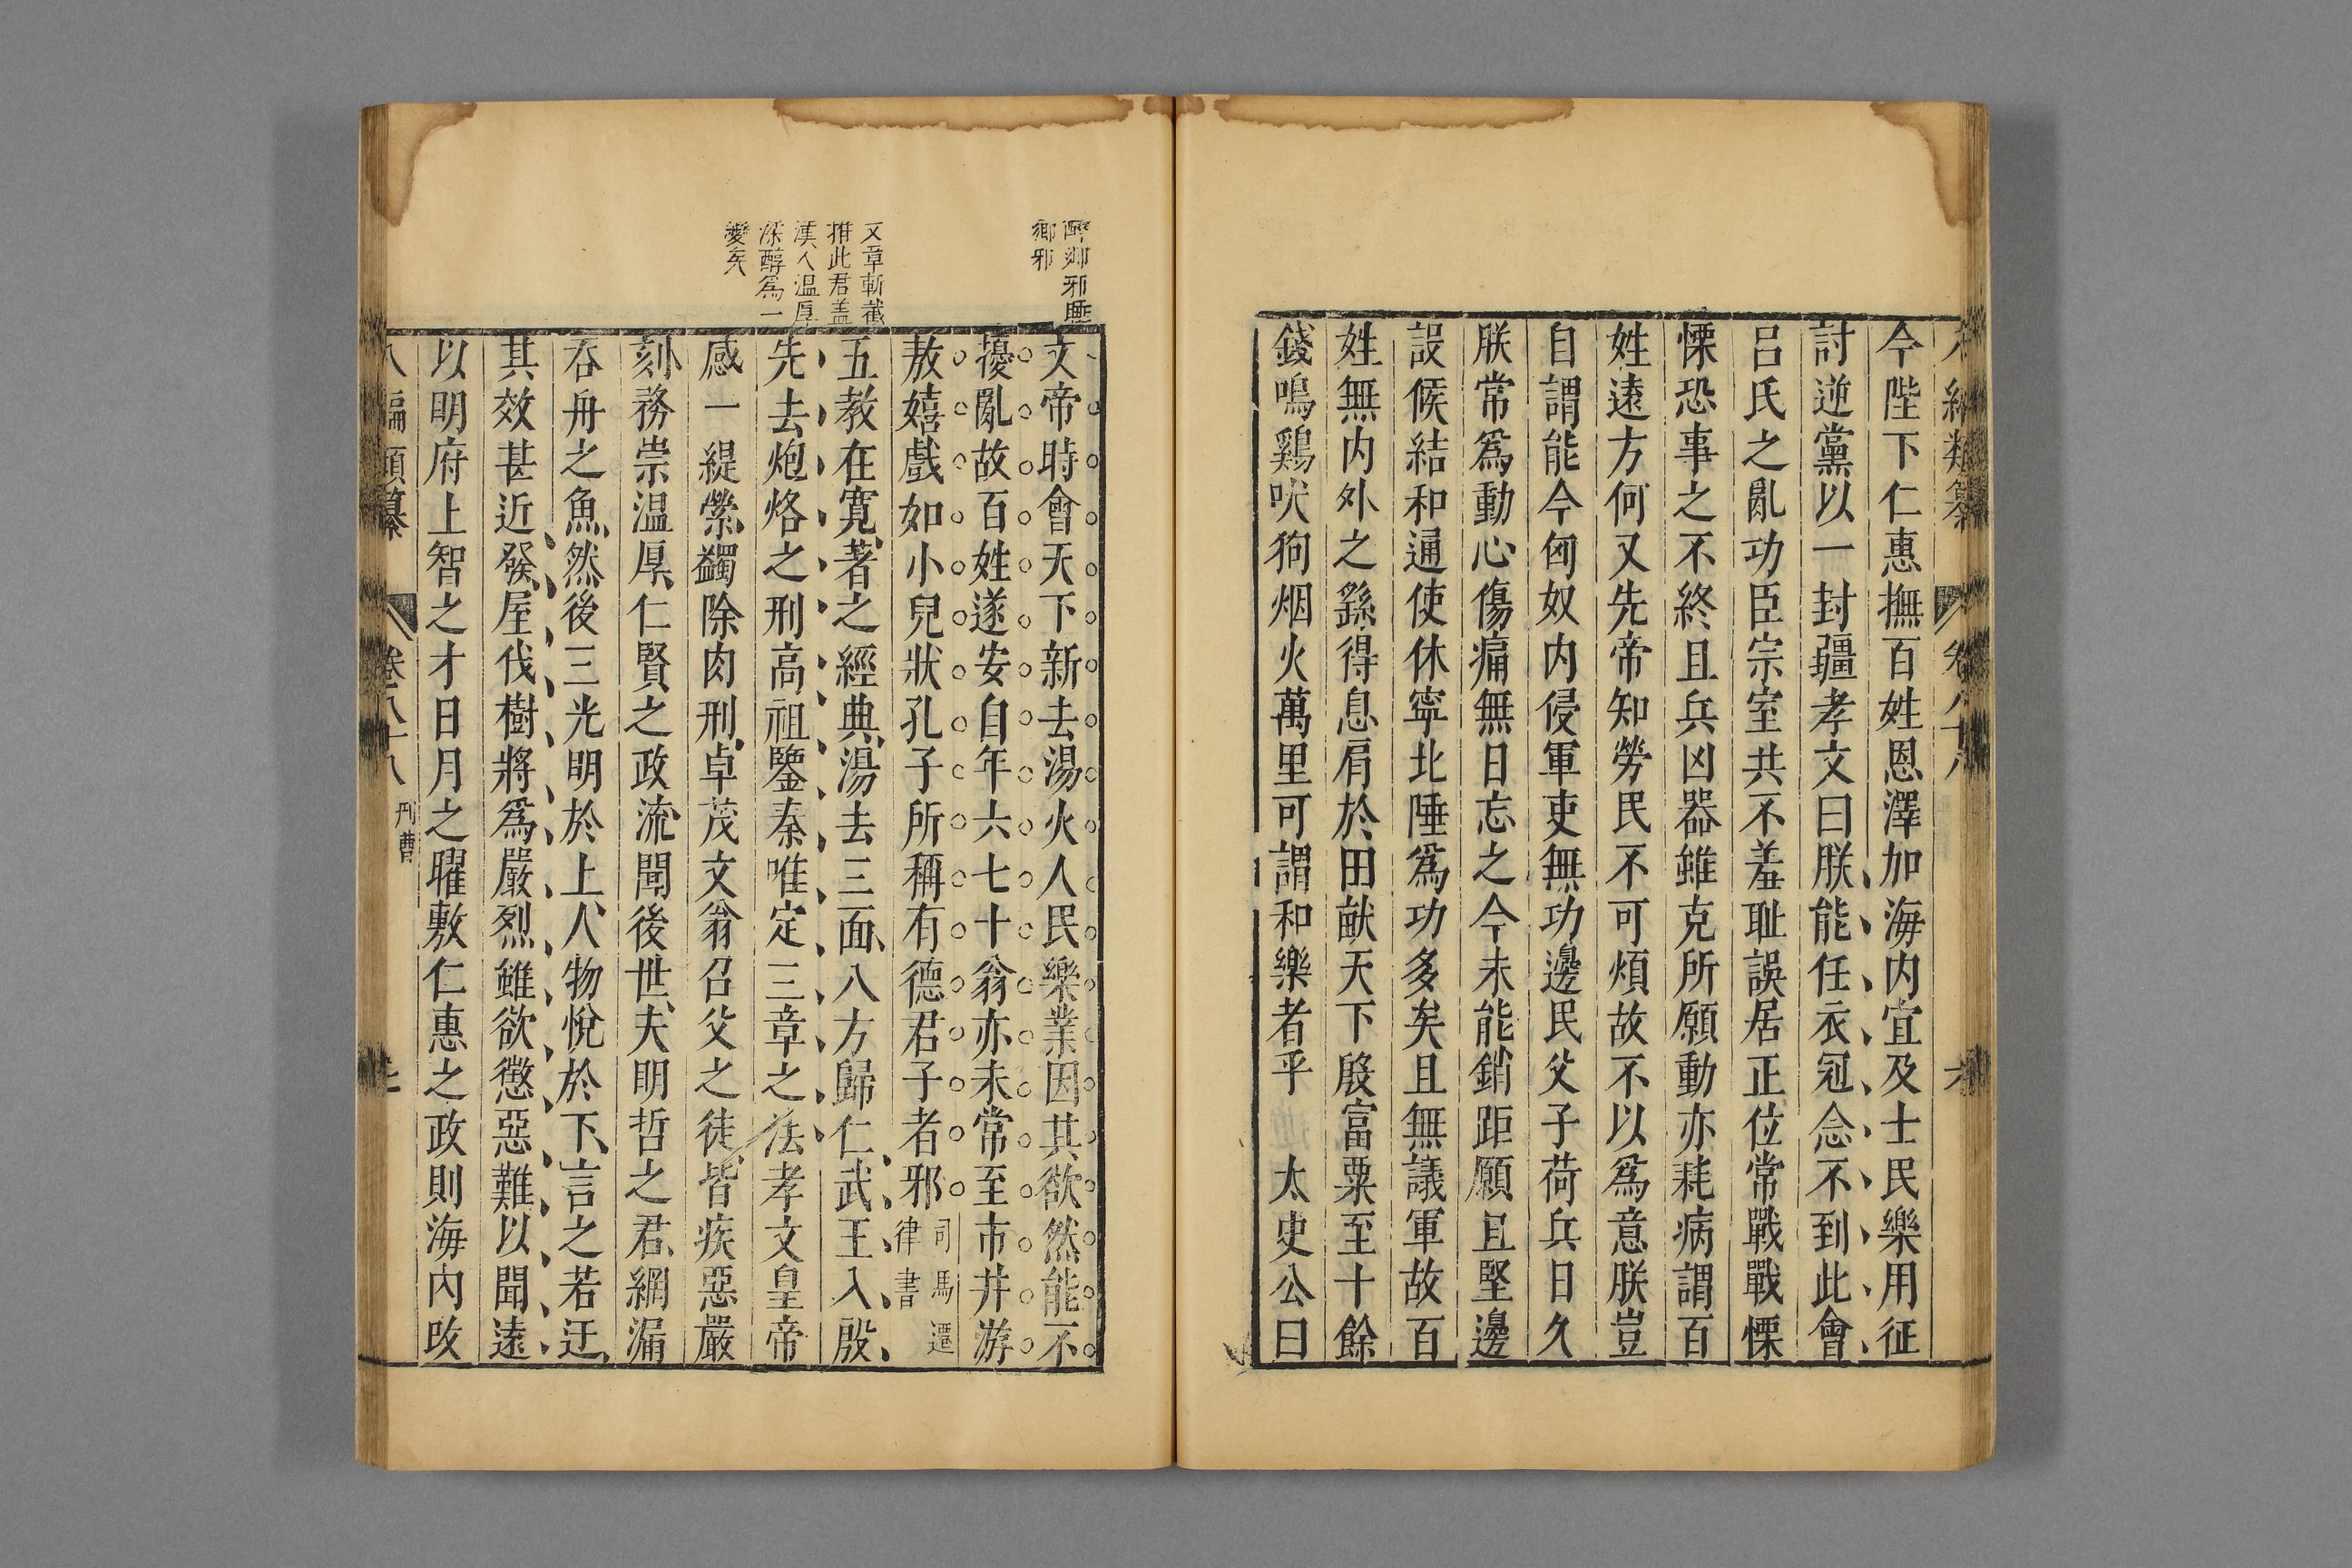 八編類纂 卷八十八 六
今陛下仁惠撫百姓恩澤加海内宜及士民樂用征
討逆黨以一封疆孝文曰朕能任衣冠念不到此會
吕氏之亂功臣宗室共不羞耻誤居正位常戰戰慄
慄恐事之不終且兵凶器雖克所願動亦耗病謂百
姓遠方何又先帝知勞民不可煩故不以爲意朕豈
自謂能今匈奴内侵軍吏無功邊民父子荷兵日久
朕常爲動心傷痛無日忘之今未能銷距願且堅邊
設候結和通使休寧北陲爲功多矣且無議軍故百
姓無内外之繇得息肩於田畝天下殷富粟至十餘
錢鳴鷄吠狗烟火萬里可謂和樂者乎 太史公曰
醉鄉邪睡
鄉邪
文帝時會天下新去湯火人民樂業因其欲然能不
擾亂故百姓遂安自年六七十翁亦未常至市井游
敖嬉戲如小兒狀孔子所稱有德君子者邪 司馬遷
律書
文章斬截
推此君盖
漢人温厚
深醇爲一
變矣
五教在寬著之經典湯去三面八方歸仁武王入殷
先去炮烙之刑高祖鑒秦唯定三章之法孝文皇帝
感一緹縈蠲除肉刑卓茂文翁召父之徒皆疾惡嚴
刻務崇温厚仁賢之政流聞後世夫明哲之君網漏
吞舟之魚然後三光明於上人物悅於下言之若迂
其效甚近發屋伐樹將爲嚴烈雖欲懲惡難以聞遠
以明府上智之才日月之曜敷仁惠之政則海内改
八編類纂 卷八十八 刑曹 七